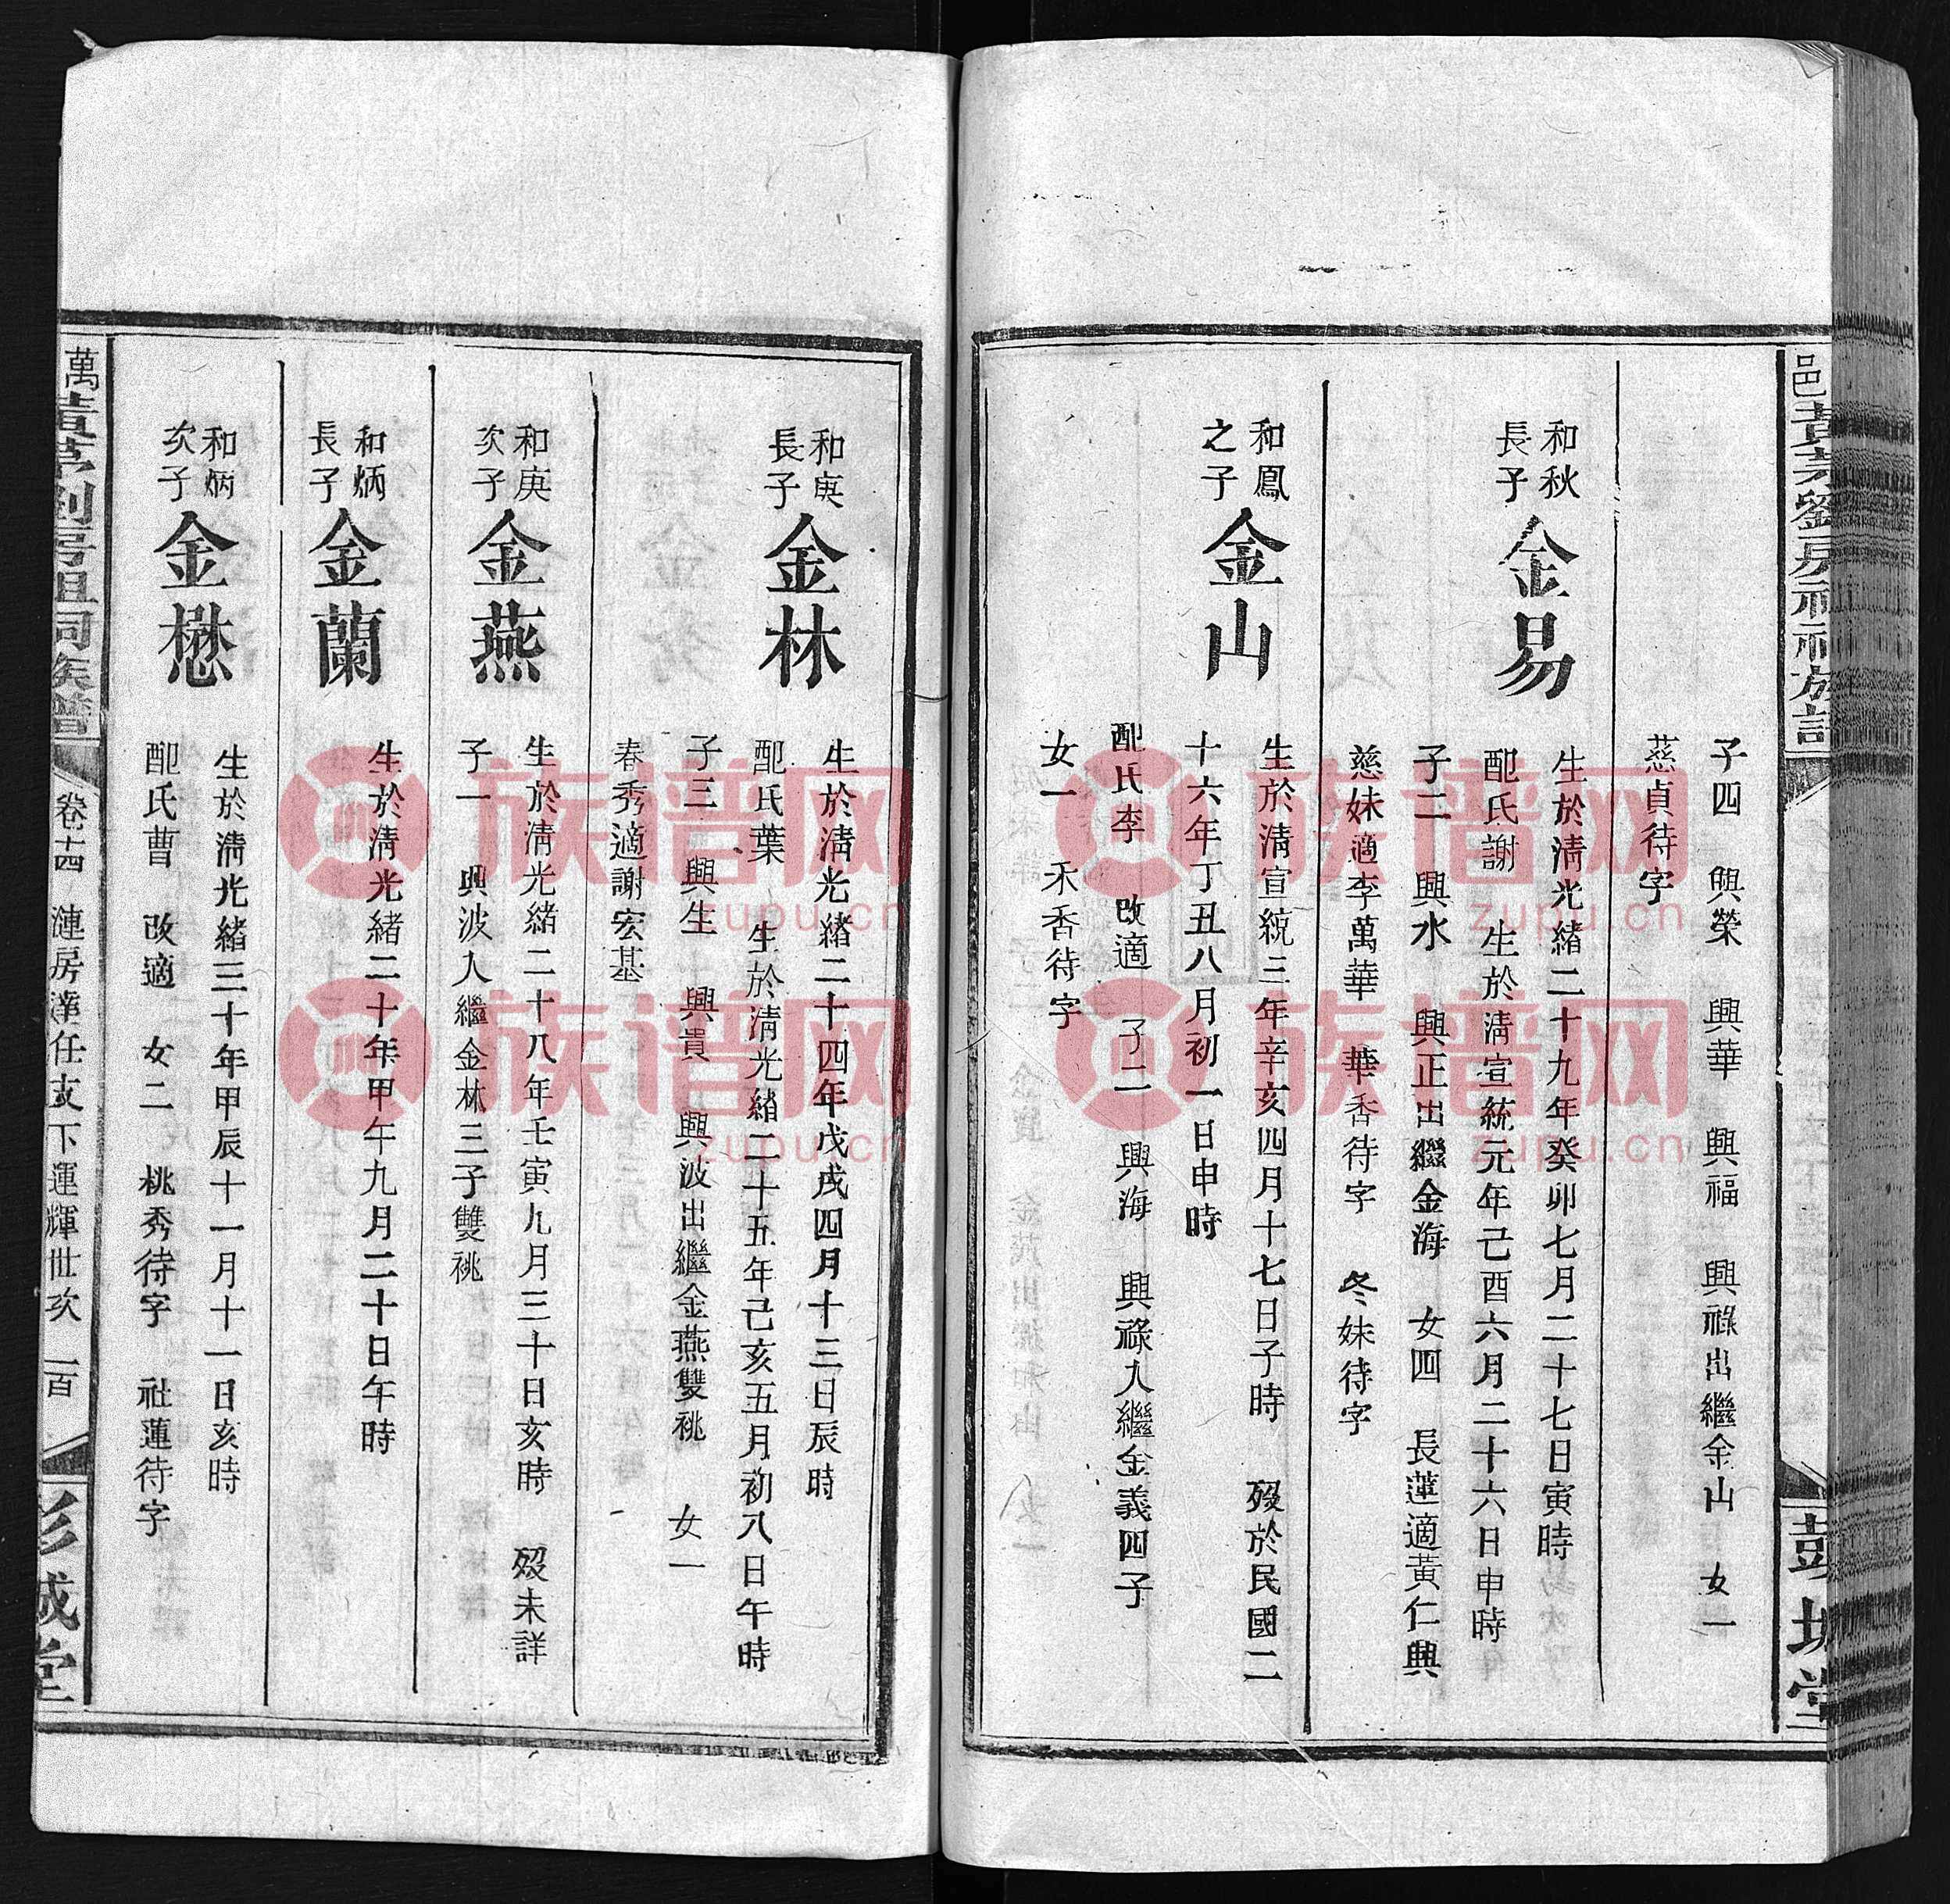 子四　興榮　興華　興福　興祿出繼金山　女一
慈貞待字
和秋
長子
金易
生於淸光緒二十九年癸卯七月二十七日寅時
配氏謝　生於淸宣統元年己酉六月二十六日申時
子二　興水　興正出繼金海　女四　長蓮適黃仁興
慈妹適李萬華　華香待字　冬妹待字
和鳳
之子
金山
生於淸宣統三年辛亥四月十七日子時　歿於民國二
十六年丁丑八月初一日申時
配氏李　改適　子二　興海　興祿入繼金義四子
女一　禾香待字
彭城堂
和庚
長子
金林
生於淸光緒二十四年戊戌四月十三日辰時
配氏葉　生於淸光緒二十五年己亥五月初八日午時
子三　興生　興貴　興波出繼金燕雙祧　女一
春秀適謝宏基
和庚
次子
金燕
生於淸光緒二十八年壬寅九月三十日亥時　歿未詳
子一　興波入繼金林三子雙祧
和炳
長子
金蘭
生於淸光緒二十年甲午九月二十日午時
和炳
次子
金懋
生於淸光緒三十年甲辰十一月十一日亥時
配氏曹　改適　女二　桃秀待字　社蓮待字
卷十四　漣房達任支下運輝世次　一百
彭城堂
族谱网
zupu.cn
族谱网
zupu.cn
族谱网
zupu.cn
族谱网
zupu.cn